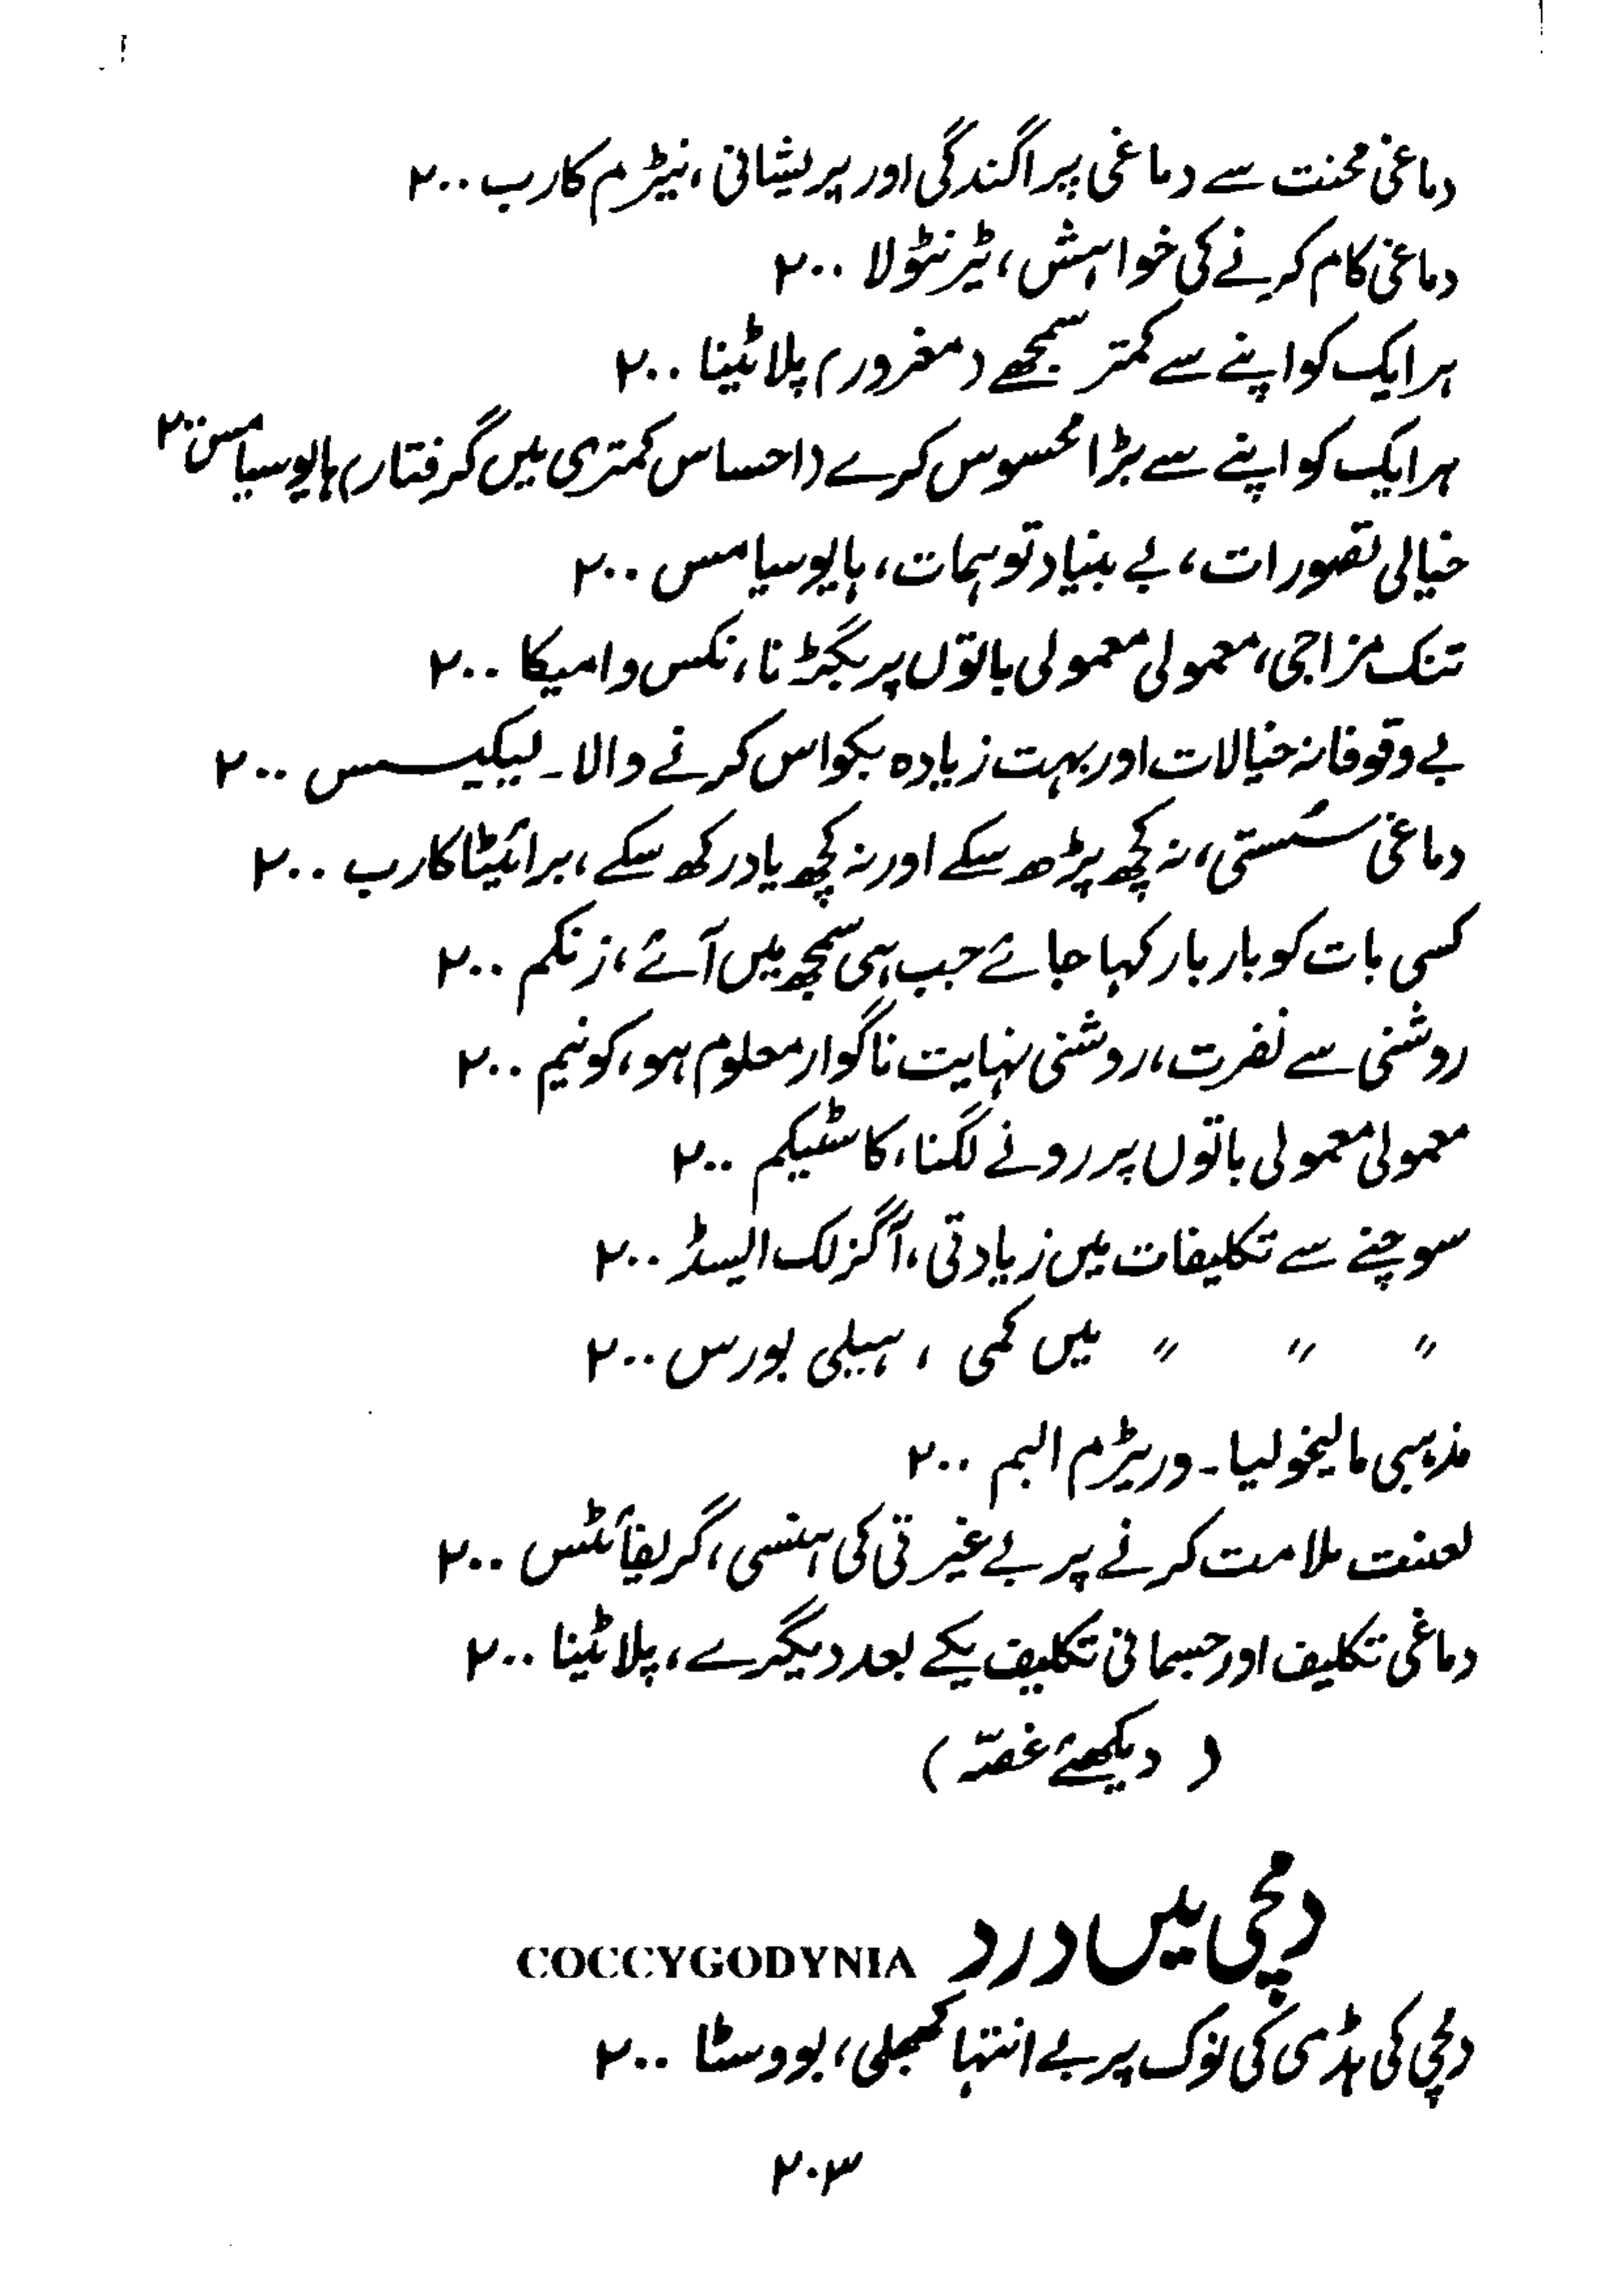 دماغی محنت سے دماغی پراگندگی اور پریشانی، نیٹرم کارب ۲۰۰
دماغی کام کرنے کی خواہش، ٹیرنٹولا ۲۰۰
ہر ایک کو اپنے سے کمتر سمجھے (مغرور) پلاٹینا ۲۰۰
ہر ایک کو اپنے سے بڑا محسوس کرے (احساس کمتری میں گرفتار) ہایوسیامس ۲۰۰
خیالی تصورات، بے بنیاد توہمات، ہایوسیامس ۲۰۰
تنک مزاجی، معمولی معمولی باتوں پر بگڑنا، نکس وامیکا ۲۰۰
بے وقوفانہ خیالات اور بہت زیادہ بکواس کرنے والا۔ لیکیسس ۲۰۰
دماغی سُستی، نہ کچھ پڑھ سکے اور نہ کچھ یاد رکھ سکے، برائیٹا کارب ۲۰۰
کسی بات کو بار بار کہا جائے جب ہی سمجھ میں آئے، زنکم ۲۰۰
روشنی سے نفرت، روشنی نہایت ناگوار معلوم ہو، کونیم ۲۰۰
معمولی معمولی باتوں پر رونے لگنا، کاسٹیکم ۲۰۰
سوچنے سے تکلیفات میں زیادتی، آگزلک ایسڈ ۲۰۰
〃 〃 〃 میں کمی ، ہیلی بورس ۲۰۰
مذہبی مالیخولیا۔ وریٹرم البم ۲۰۰
لعنت ملامت کرنے پر بے غیرتی کی ہنسی، گریفائٹس ۲۰۰
دماغی تکلیف اور جسمانی تکلیف یکے بعد دیگرے، پلاٹینا ۲۰۰
( دیکھئے غصّہ )
دمچی میں درد COCCYGODYNIA
دمچی کی ہڈی کی نوک پر بے انتہا کھجلی، بووسٹا ۲۰۰
۲۰۳